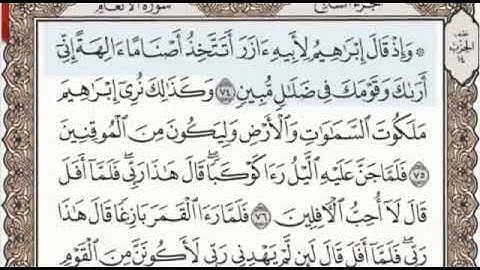 سورة الأنعام
الجزء السابع
نصف الحزب ١٤
۞ وَإِذْ قَالَ إِبْرَٰهِيمُ لِأَبِيهِ ءَازَرَ أَتَتَّخِذُ أَصْنَامًا ءَالِهَةً إِنِّىٓ
أَرَىٰكَ وَقَوْمَكَ فِى ضَلَٰلٍ مُّبِينٍ ٧٤ وَكَذَٰلِكَ نُرِىٓ إِبْرَٰهِيمَ
مَلَكُوتَ ٱلسَّمَٰوَٰتِ وَٱلْأَرْضِ وَلِيَكُونَ مِنَ ٱلْمُوقِنِينَ
٧٥ فَلَمَّا جَنَّ عَلَيْهِ ٱلَّيْلُ رَءَا كَوْكَبًا ۖ قَالَ هَٰذَا رَبِّى ۖ فَلَمَّآ أَفَلَ
قَالَ لَآ أُحِبُّ ٱلْءَافِلِينَ ٧٦ فَلَمَّا رَءَا ٱلْقَمَرَ بَازِغًا قَالَ هَٰذَا
رَبِّى ۖ فَلَمَّآ أَفَلَ قَالَ لَئِن لَّمْ يَهْدِنِى رَبِّى لَأَكُونَنَّ مِنَ ٱلْقَوْمِ